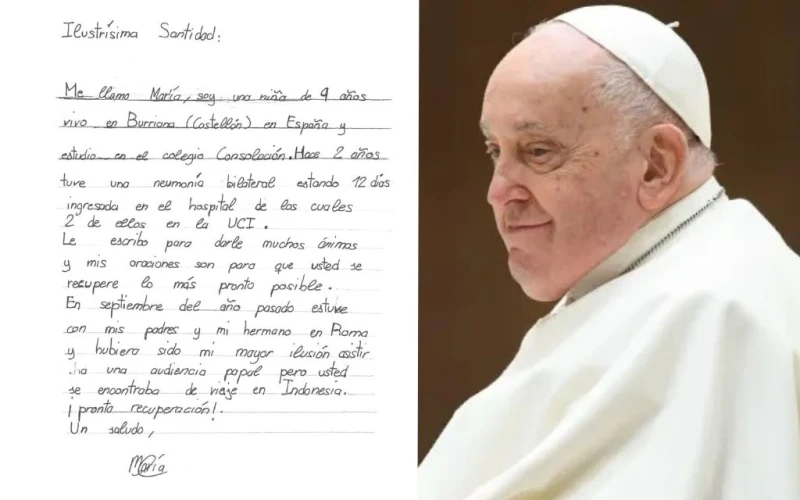 Ilustrísima Santidad:
Me llamo María, soy una niña de 9 años
vivo en Burriana (Castellón) en España y
estudio en el colegio Consolación. Hace 2 años
tuve una neumonía bilateral estando 12 días
ingresada en el hospital de los cuales
2 de ellos en la UCI.
Le escribo para darle muchos ánimos
y mis oraciones son para que usted se
recupere lo más pronto posible.
En septiembre del año pasado estuve
con mis padres y mi hermano en Roma
y hubiera sido mi mayor ilusión asistir
ha una audiencia papal pero usted
se encontraba de viaje en Indonesia.
¡pronta recuperación!.
Un saludo,
María